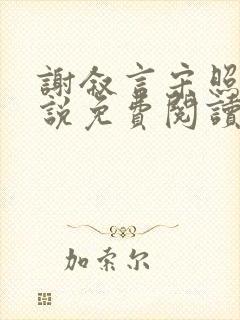 謝敘言宋照
說免費閱讀
加索尔